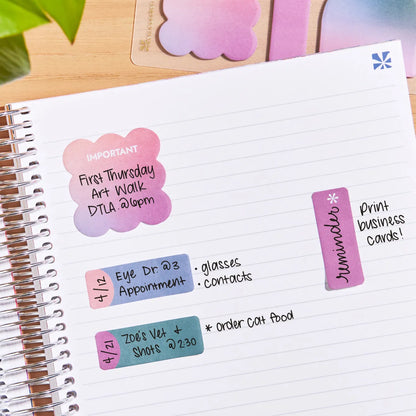 IMPORTANT
First Thursday
Art Walk
DTLA @6pm
reminder *
Print
business
cards!
4/12
Eye Dr. @3
Appointment
· glasses
· contacts
4/21
Zoe's Vet +
Shots @2:30
* Order Cat Food